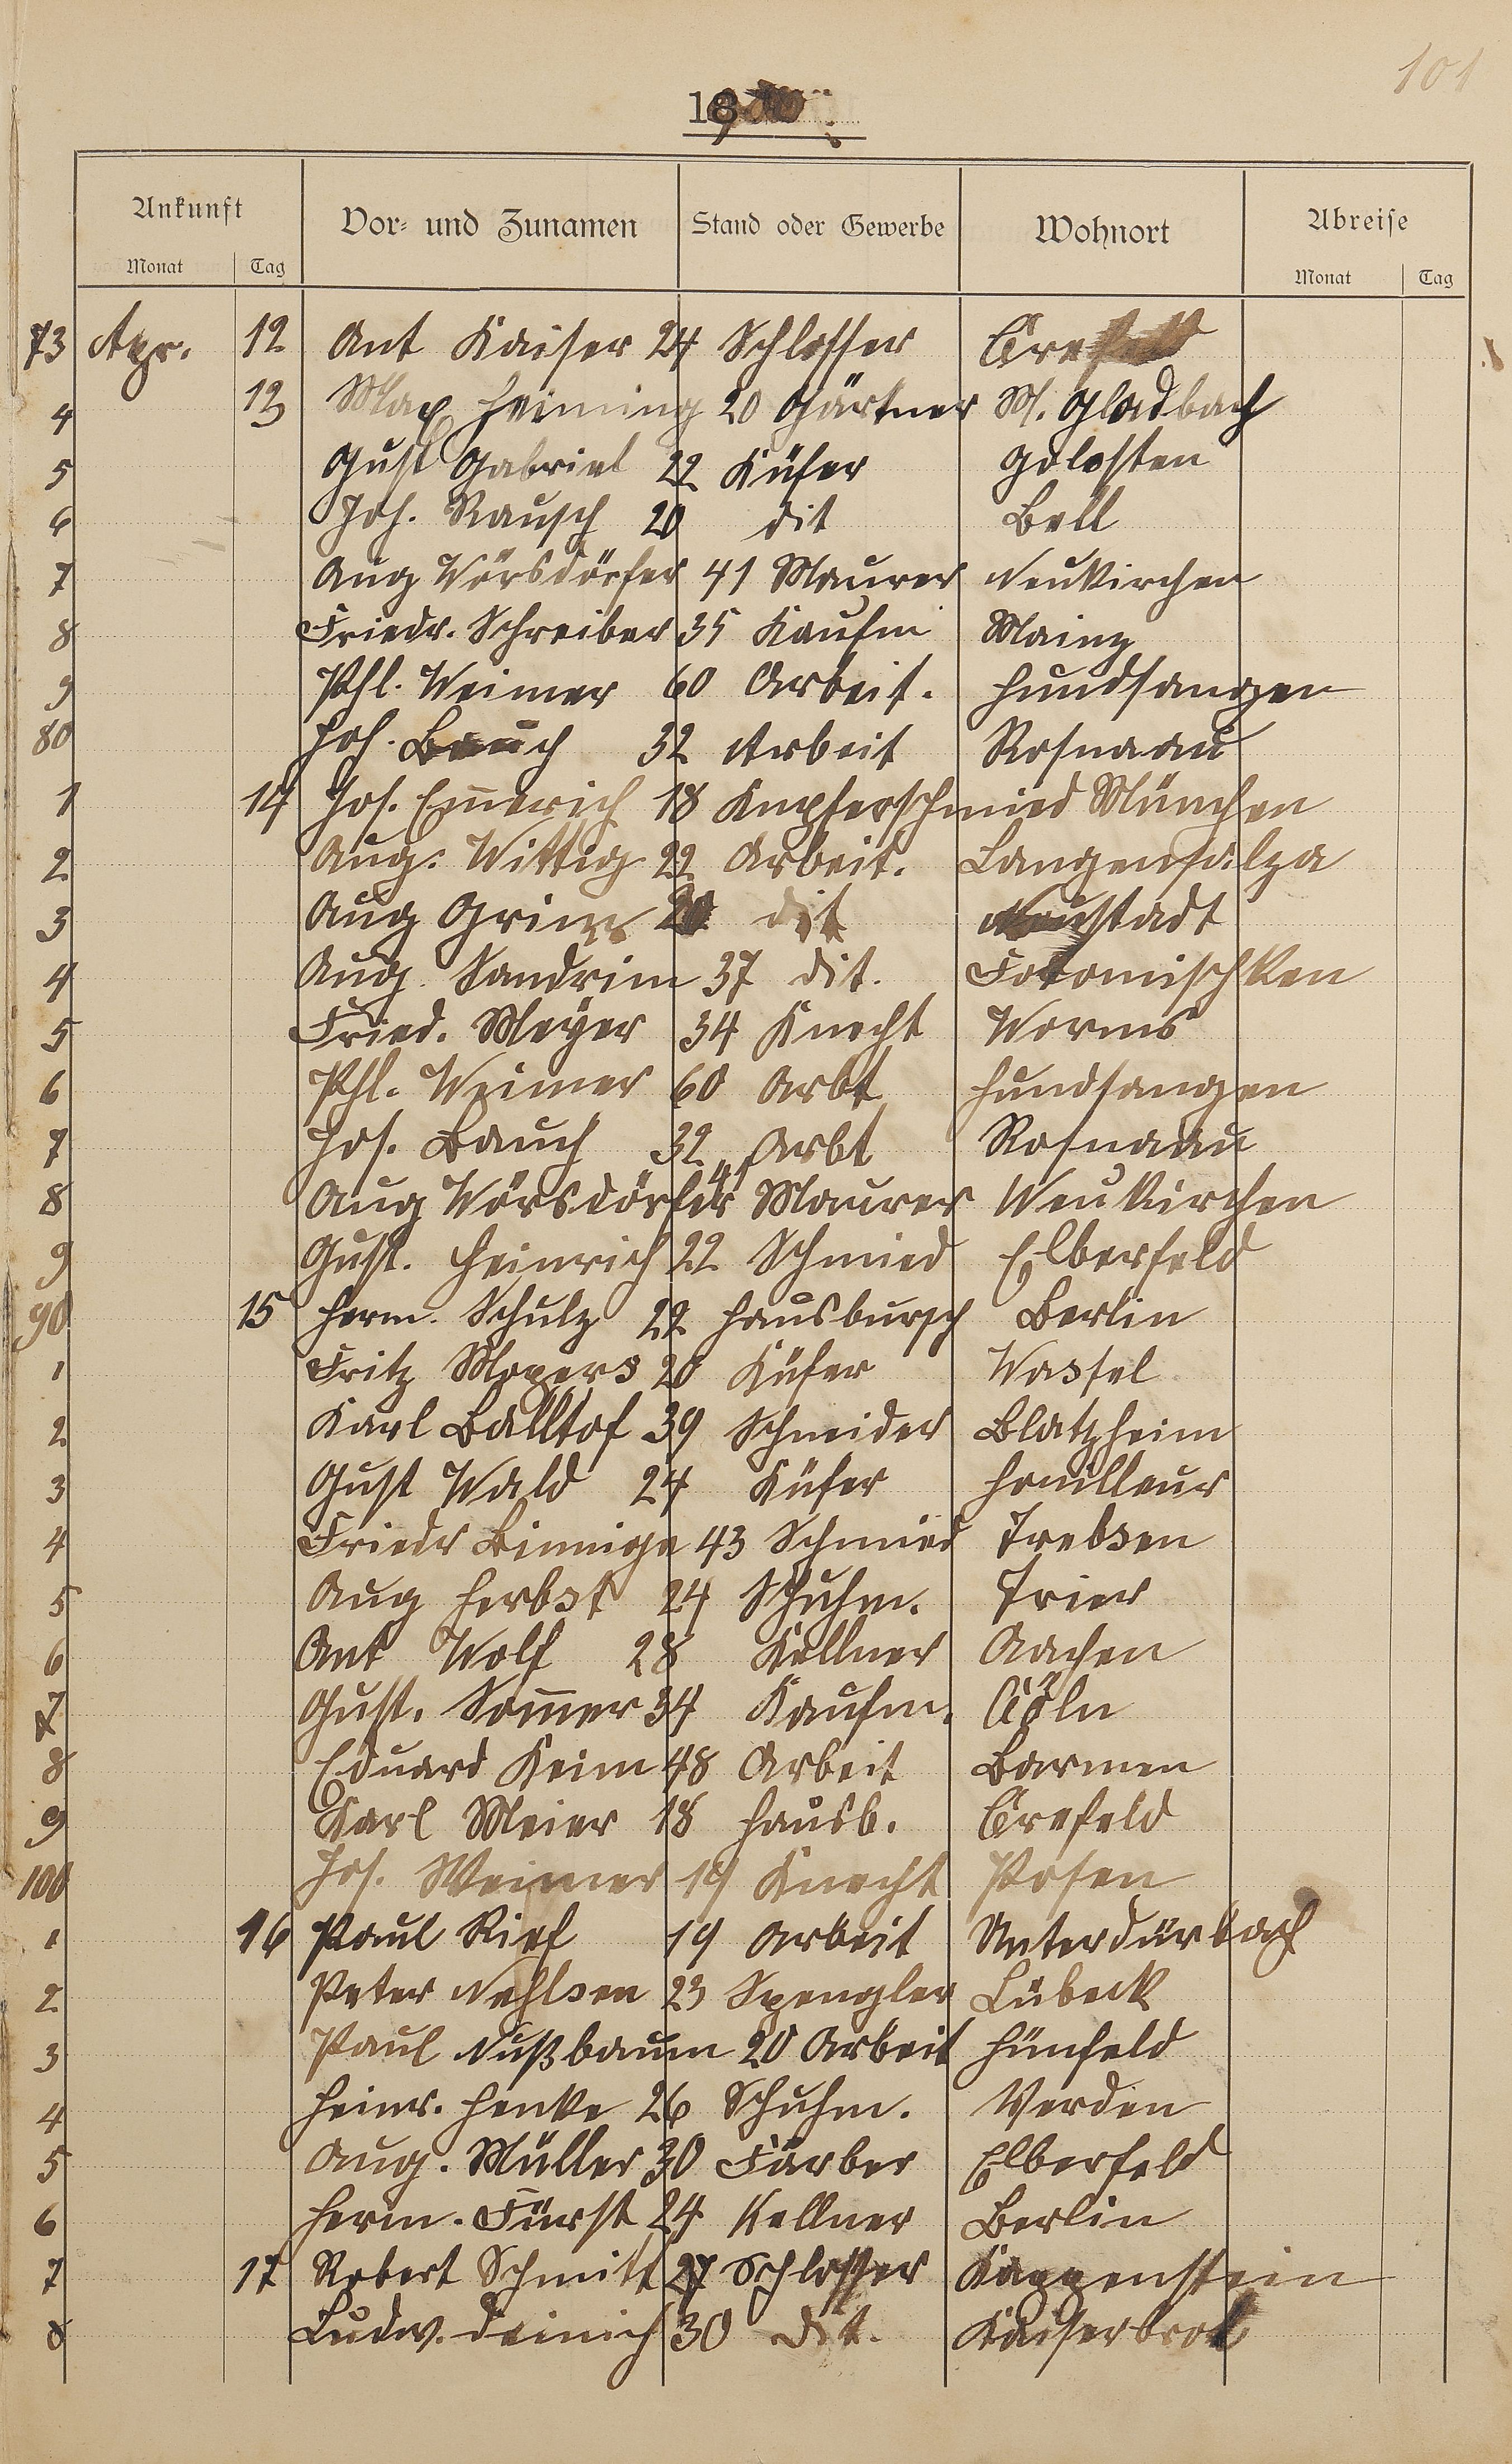 101
Ankunft Vor- und Zunamen Stand oder Gewerbe Wohnort Abreise
Monat Tag Monat Tag
73 Apr. 12 Ant Kaiser 24 Schlosser Crefeld
4 13 Max Heiming 20 Gärtner M. Gladbach
5 Gust Gabriel 22 Küfer
6 Joh. Rausch 20 dit Bell
7 Aug Vörsdörfer 41 Maurer Neukirchen
8 Friedr. Schreiber 35 Kaufm Mainz
9 Phl. Weimer 60 Arbeit. Hundsangen
80 Jos. Bauch 32 Arbeit Rosnaau
1 14 Jos. Em̅erich 18 Kupferschmied München
2 Aug. Wittig 22 Arbeit. Langensalza
3 Aug Grim dit Neustadt
4 Aug. Sandrim 37 dit.
5 Fried. Meyer 34 Knecht Worms
6 Phl. Weimer 60 Arbt Hundsangen
7 Jos. Bauch 32 Arbt Rosnaau
8 Aug Vörsdörfer 41 Maurer Neukirchen
9 Gust. Heinrich 22 Schmied Elberfeld
90 15 Herm. Schulz 22 Hausbursch Berlin
1 Fritz 20 Küfer
2 Karl Balltof 39 Schneider Blatzheim
3 Gust Wald 24 Küfer
4 Friedr Binnige 43 Schmied Trebsen
5 Aug Herbst 24 Schuhm. Trier
6 Ant Wolf 28 Kellner Aachen
7 Gust. Som̅er 34 Kaufm. Cöln
8 Eduard Keim 48 Arbeit Barmen
9 Karl Meier 18 Hausb. Crefeld
100 Jos. Weimer 19 Knecht Posen
1 16 Paul Rief 19 Arbeit Unterdürbach
2 Peter Nehlsen 23 Spengler Lübeck
3 Paul Nußbaum 20 Arbeit Hünfeld
4 Heinr. Henke 26 Schuhm. Verden
5 Aug. Müller 30 Färber Elberfeld
6 Herm. Fürst 24 Kellner Berlin
7 17 Robert Schmitt 27 Schlosser Kappenstein
8 Ludw. Deinich 30 dit.